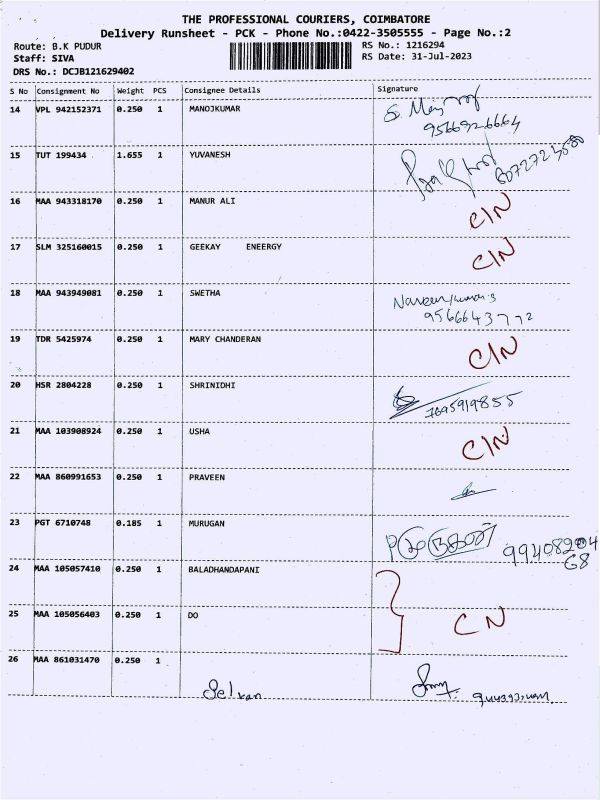 THE PROFESSIONAL COURIERS, COIMBATORE
Delivery Runsheet - PCK - Phone No.:0422-3505555 - Page No.:2
Route: B.K PUDUR RS No.: 1216294
Staff: SIVA RS Date: 31-Jul-2023
DRS No.: DCJB121629402
S No Consignment No Weight PCS Consignee Details Signature
14 VPL 942152371 0.250 1 MANOJKUMAR
9566926664
15 TUT 199434 1.655 1 YUVANESH
16 MAA 943318170 0.250 1 MANUR ALI C/N
17 SLM 325160015 0.250 1 GEEKAY ENEERGY C/N
18 MAA 943949081 0.250 1 SWETHA
9566643772
19 TDR 5425974 0.250 1 MARY CHANDERAN C/N
20 HSR 2804228 0.250 1 SHRINIDHI
7695919855
21 MAA 103908924 0.250 1 USHA C/N
22 MAA 860991653 0.250 1 PRAVEEN
23 PGT 6710748 0.185 1 MURUGAN
முருகன்
24 MAA 105057410 0.250 1 BALADHANDAPANI
25 MAA 105056403 0.250 1 DO CN
26 MAA 861031470 0.250 1
Selvan